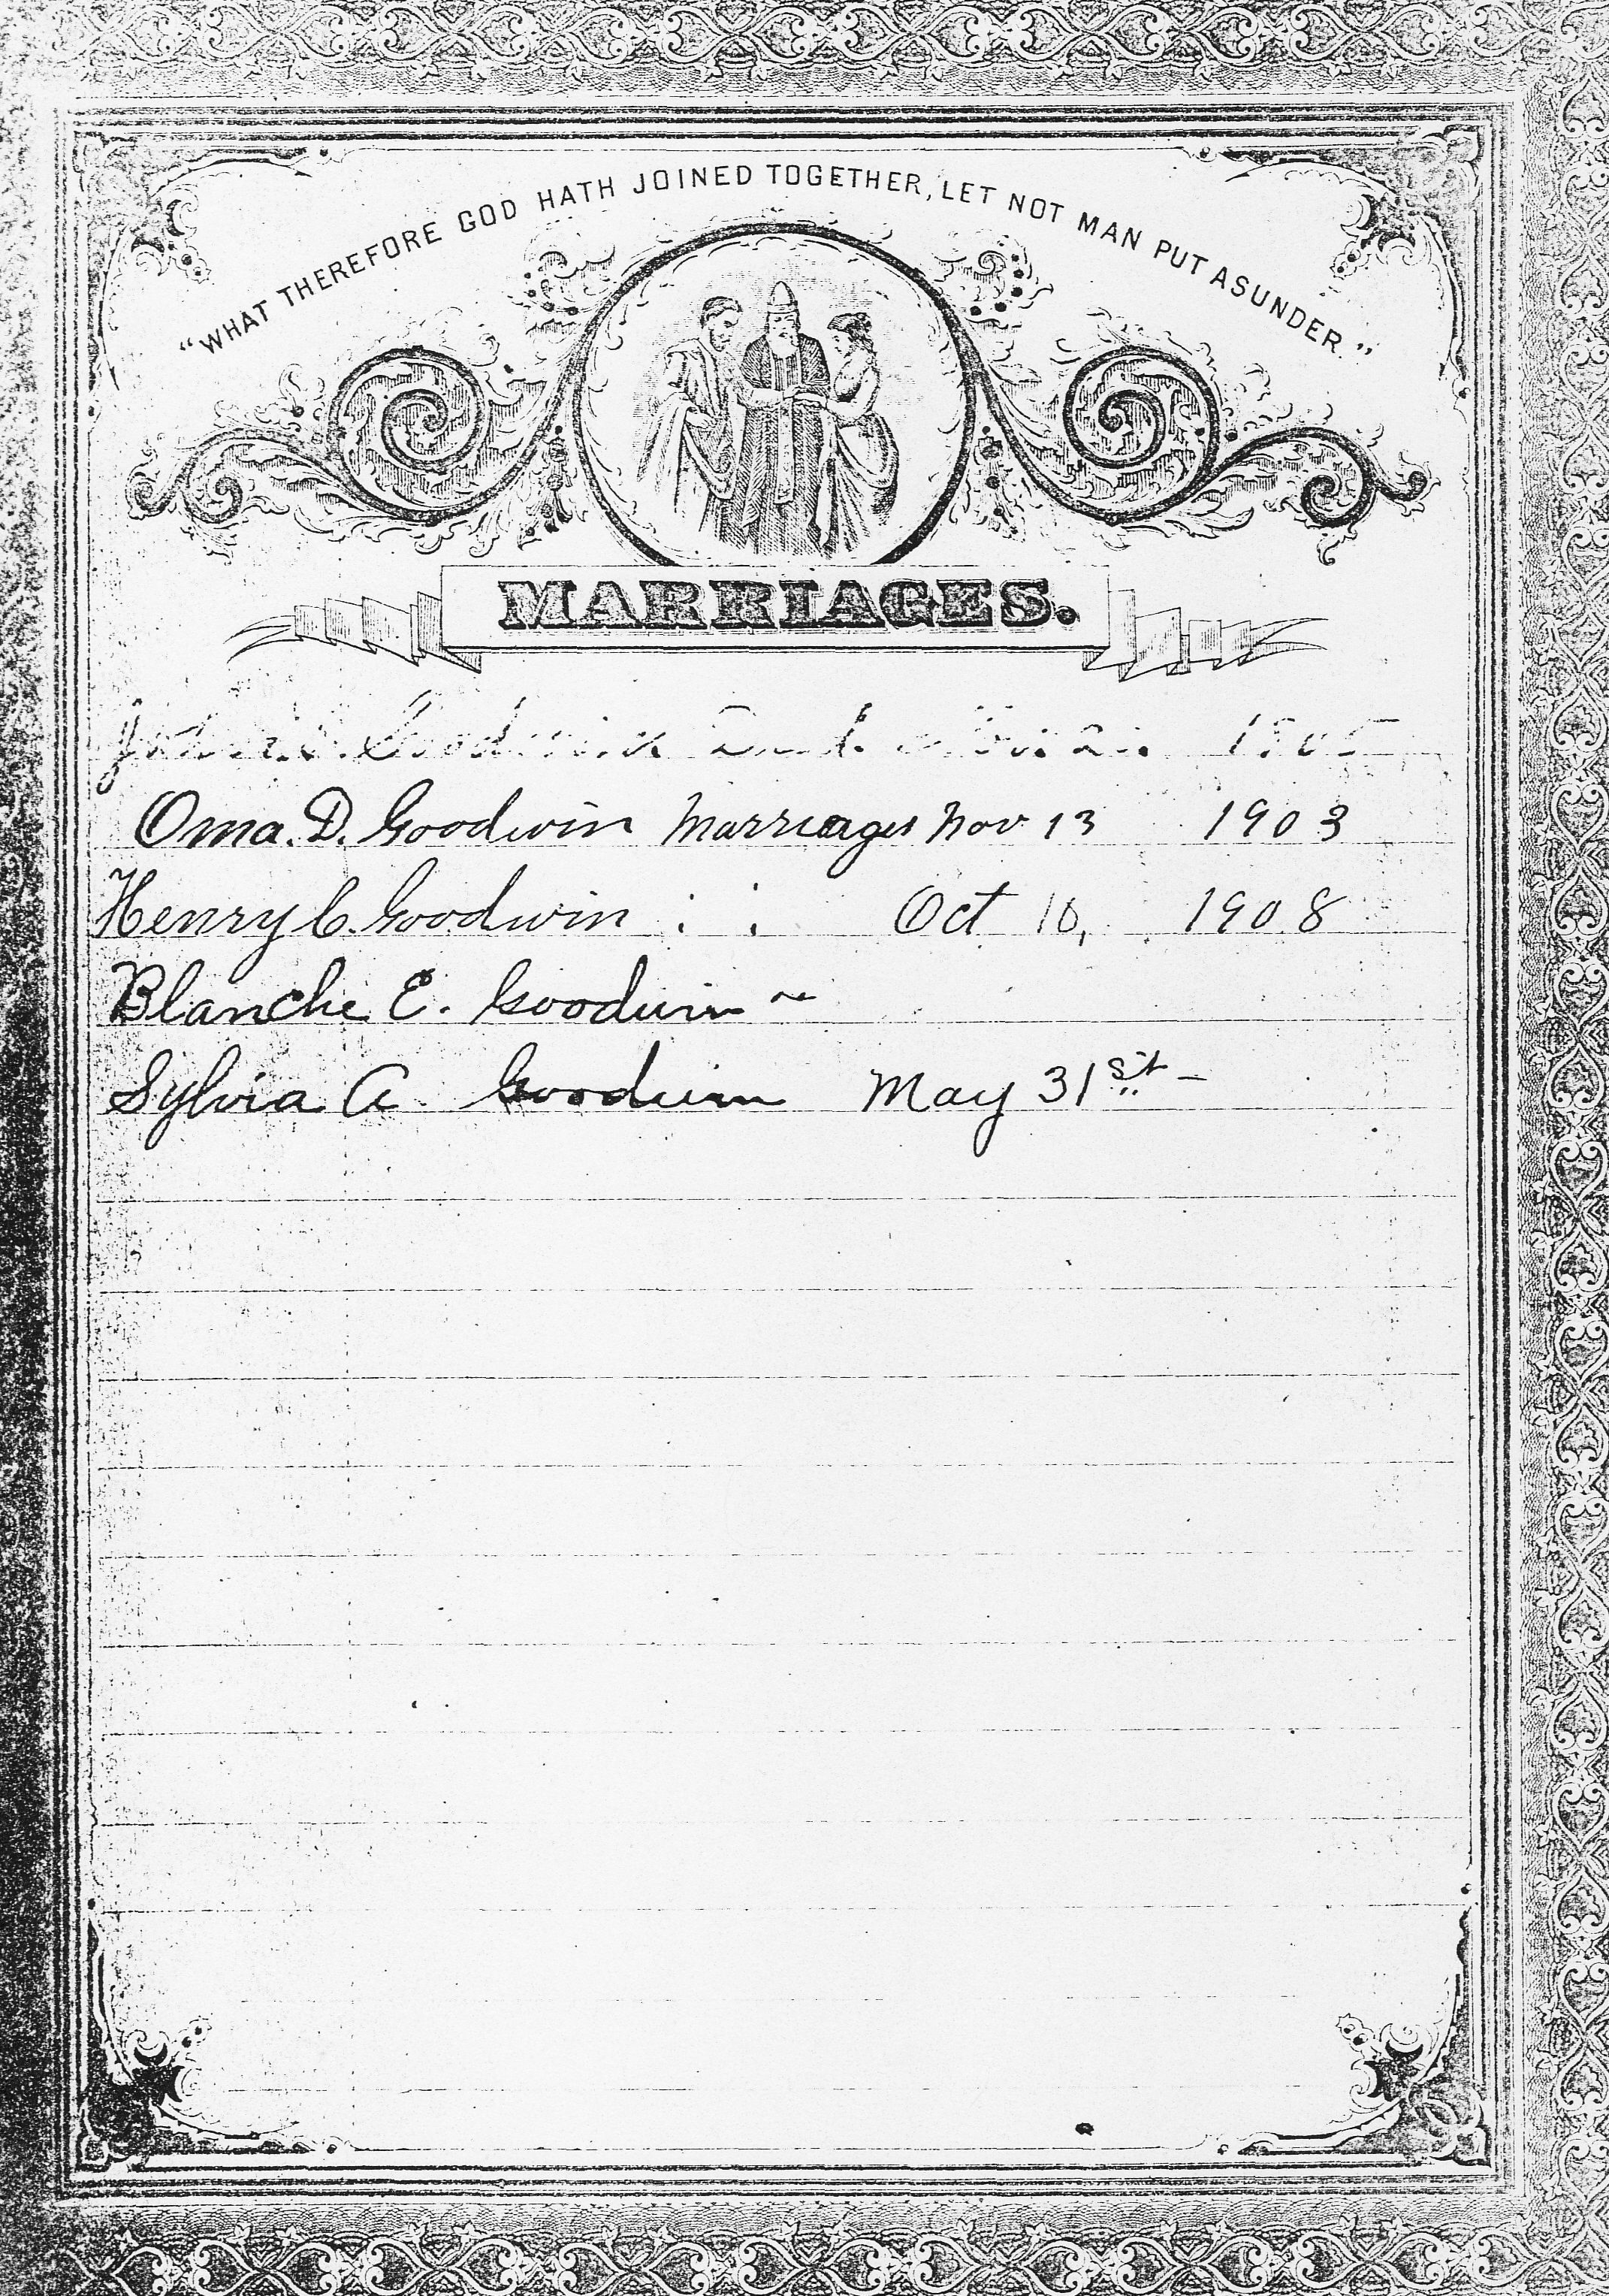 "WHAT THEREFORE GOD HATH JOINED TOGETHER, LET NOT MAN PUT ASUNDER."
MARRIAGES.
Goodwin
Oma. D. Goodwin Marriages Nov 13 1903
Henry C. Goodwin : : Oct 10, 1908
Blanche E. Goodwin
Sylvia A. Goodwin May 31st -